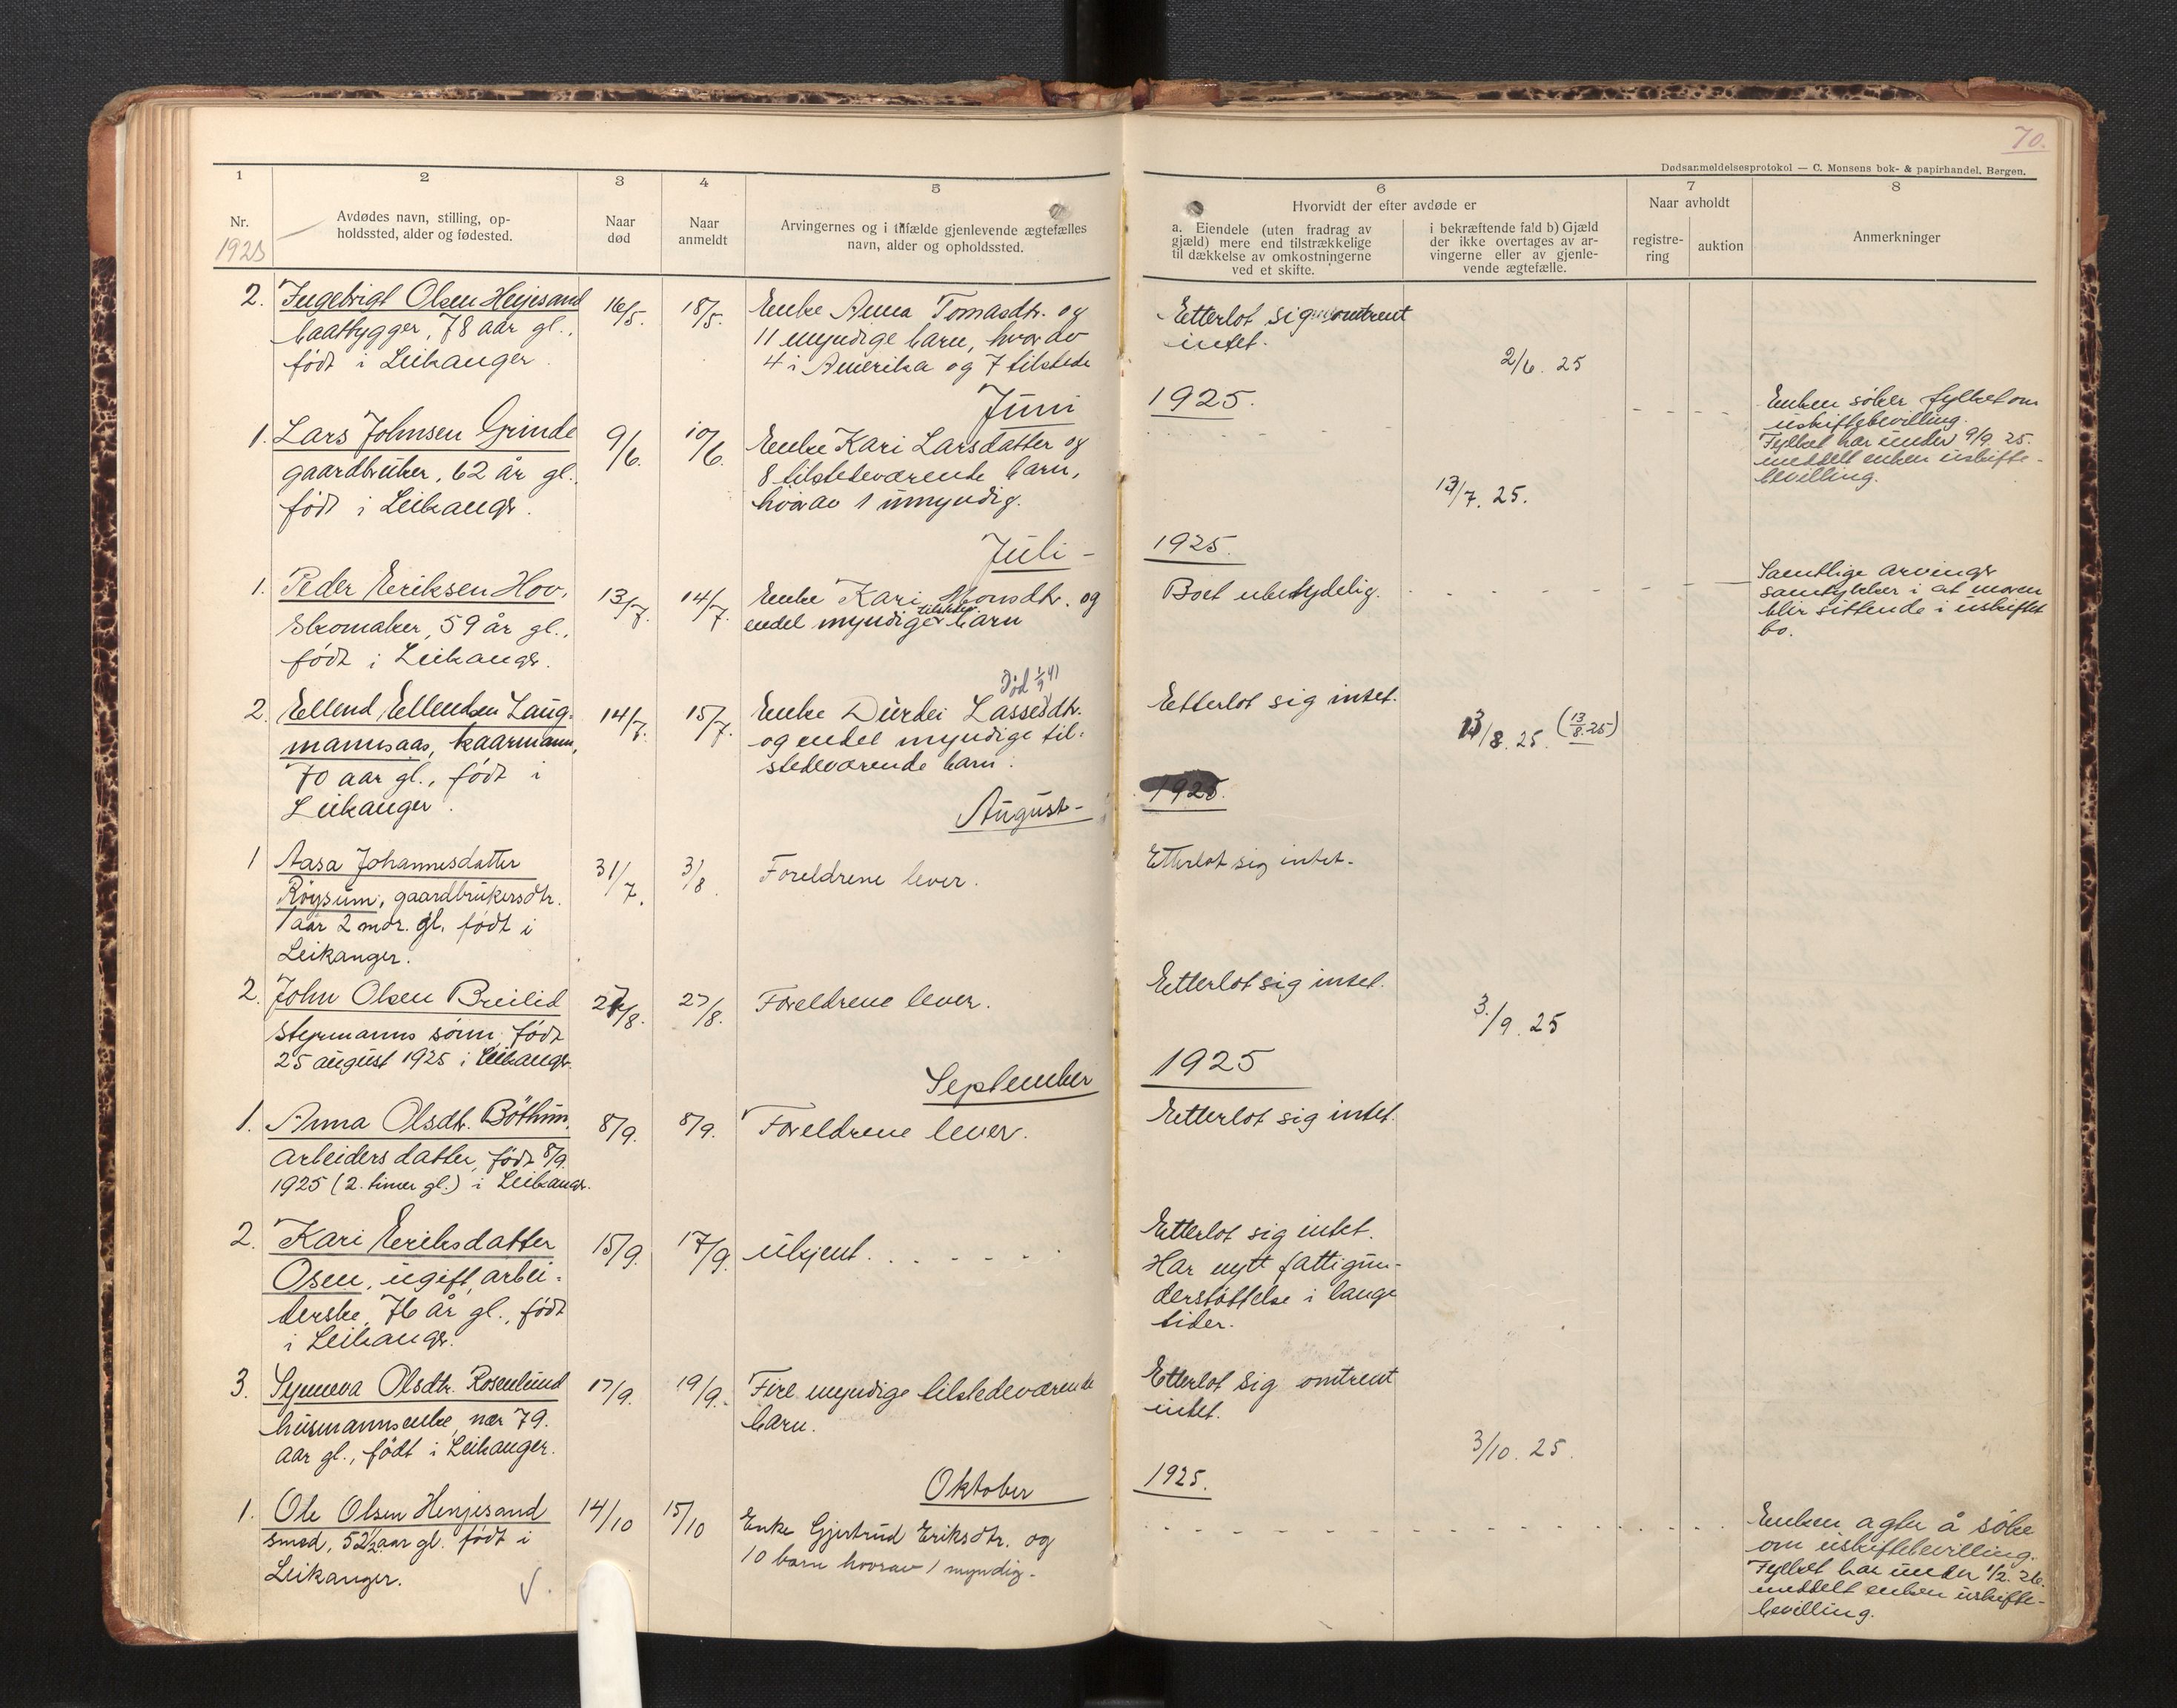 70.
Dødsanmeldelsesprotokol — C. Monsens bok- & papirhandel, Bergen.
1
2
3
4
5
6
7
8
Nr.
1925
Avdødes navn, stilling, op-
holdssted, alder og fødested.
Naar
død
Naar
anmeldt
Arvingernes og i tilfælde gjenlevende ægtefælles
navn, alder og opholdssted.
Hvorvidt der efter avdøde er
a. Eiendele (uten fradrag av
gjæld) mere end tilstrækkelige
til dækkelse av omkostningerne
ved et skifte.
i bekræftende fald b) Gjæld
der ikke overtages av ar-
vingerne eller av gjenle-
vende ægtefælle.
Naar avholdt
registre-
ring
auktion
Anmerkninger
2. Ingebrigt Olsen Henjesand
baatbygger, 78 aar gl.,
født i Leikanger.
16/5.
18/5.
Enke Anna Tomasdtr. og
11 myndige barn, hvorav
4 i Amerika og 7 tilstede
Etterlot sig omtrent
intet.
2/6. 25
Juni 1925.
1. Lars Johnsen Grinde
gaardbruker, 62 år gl.,
født i Leikangr.
9/6.
10/6.
Enke Kari Larsdatter og
8 tilstedeværende barn,
hvorav 1 umyndig.
13/7. 25.
Enken söker fylket om
uskiftebevilling.
Fylket har under 9/9. 25.
meddelt enken uskifte-
bevilling.
Juli - 1925.
1. Peder Eriksen Hov,
Skomaker, 59 år gl.,
født i Leikangr.
13/7.
14/7.
Enke Kari Monsdtr. og
tilstedev.
endel myndige barn
Boet ubetydelig.
Samtlige arvinger
samtykker i at moren
blir sittende i uskiftet
bo.
2. Ellend Ellendsen Laug-
mannsaas, kaarmann,
70 aar gl., født i
Leikanger.
14/7.
15/7.
Død 1/9 41
Enke Durdei Lassesdtr.
og endel myndige til-
stedeværende barn.
Etterlot sig intet.
13/8. 25. (13/8. 25)
August - 1925.
1 Aasa Johannesdatter
Röysum, gaardbrukersdtr.
1 aar 2 mdr. gl. født i
Leikanger.
31/7.
3/8.
Foreldrene lever.
Etterlot sig intet.
2. John Olsen Breilid
styrmanns sönn, født
25 august 1925 i Leikangr.
27/8.
27/8.
Foreldrene lever.
Etterlot sig intet.
3./9. 25
September 1925
1. Anna Olsdtr. Böthun,
arbeiders datter, født 8/9.
1925 (2. timer gl.) i Leikangr.
8/9.
8/9.
Foreldrene lever.
Etterlot sig intet.
2. Kari Eriksdatter
Osen, ugift, arbei-
derske, 76 år gl., født
i Leikangr.
15/9.
17/9.
Ukjent.
Etterlot sig intet.
Har nytt fattigun-
derstöttelse i lange
tider.
3. Synneva Olsdtr. Rosenlund
husmannsenke, nær 79.
aar gl., født i Leikanger.
17/9.
19/9.
Fire myndige tilstedeværende
barn.
Etterlot sig omtrent
intet.
3/10. 25.
Oktober 1925.
1. Ole Olsen Henjesand
smed, 52½ aar gl. født i
Leikanger.
14/10
15/10
Enke Gjertrud Eriksdtr. og
10 barn hvorav 1 myndig.
Enken agter å söke
om uskiftebevilling.
Fylket har under 1/2. 26.
meddelt enken uskifte-
bevilling.